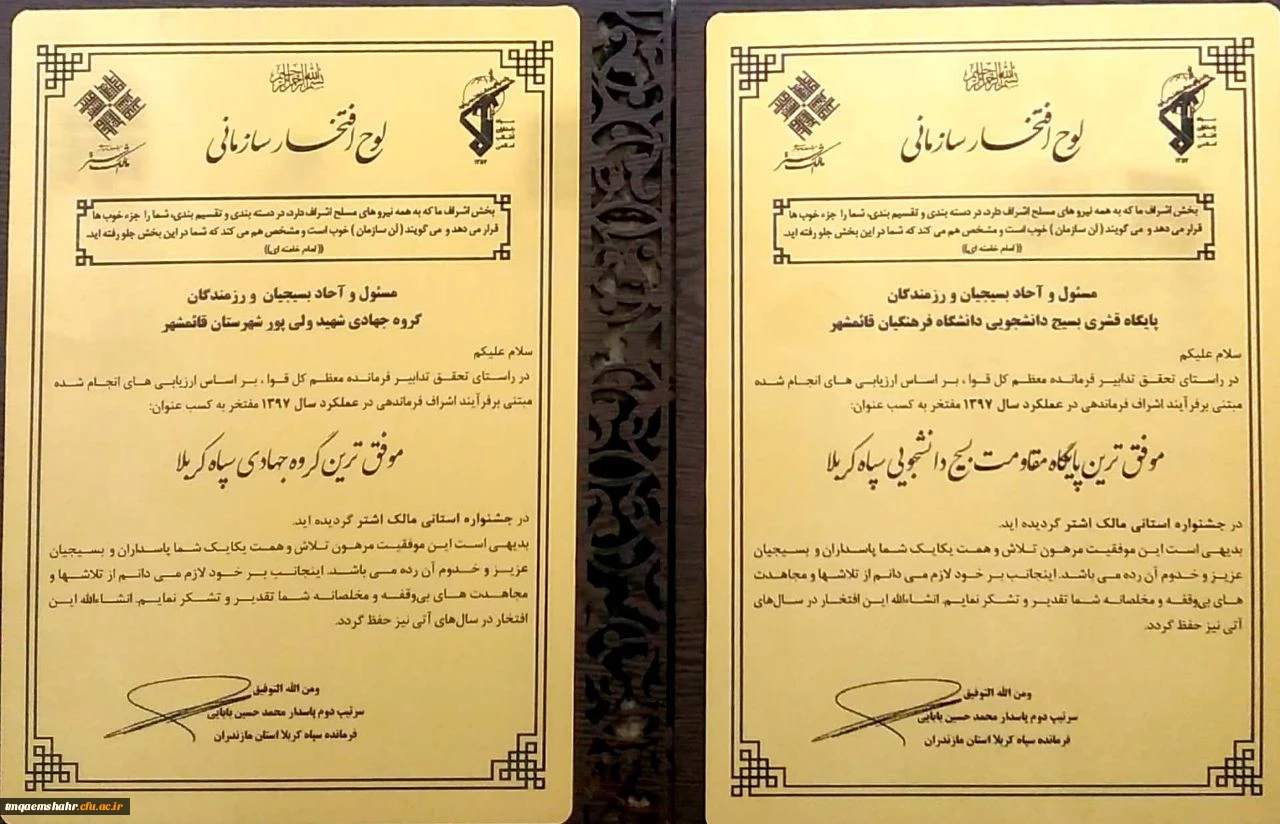 بسم الله الرحمن الرحیم
لوح افتخار سازمانی
مالک اشتر
۱۳۵۷
بخش اشراف ما که به همه نیرو های مسلح اشراف دارد، در دسته بندی و تقسیم بندی، شما را جزء خوب ها
قرار می دهد و می گویند ( آن سازمان ) خوب است و مشخص هم می کند که شما در این بخش جلو رفته اید.
((امام خامنه ای))
مسئول و آحاد بسیجیان و رزمندگان
پایگاه قشری بسیج دانشجویی دانشگاه فرهنگیان قائمشهر
سلام علیکم
در راستای تحقق تدابیر فرمانده معظم کل قوا ، بر اساس ارزیابی های انجام شده
مبتنی برفرآیند اشراف فرماندهی در عملکرد سال ۱۳۹۷ مفتخر به کسب عنوان:
موفق ترین پایگاه مقاومت بسیج دانشجویی سپاه کربلا
در جشنواره استانی مالک اشتر گردیده اید.
بدیهی است این موفقیت مرهون تلاش و همت یکایک شما پاسداران و بسیجیان
عزیز و خدوم آن رده می باشد. اینجانب بر خود لازم می دانم از تلاشها و مجاهدت
های بی‌وقفه و مخلصانه شما تقدیر و تشکر نمایم. انشاءالله این افتخار در سال‌های
آتی نیز حفظ گردد.
ومن الله التوفیق
سرتیپ دوم پاسدار محمد حسین بابایی
فرمانده سپاه کربلا استان مازندران
بسم الله الرحمن الرحیم
لوح افتخار سازمانی
مالک اشتر
۱۳۵۷
بخش اشراف ما که به همه نیرو های مسلح اشراف دارد، در دسته بندی و تقسیم بندی، شما را جزء خوب ها
قرار می دهد و می گویند ( آن سازمان ) خوب است و مشخص هم می کند که شما در این بخش جلو رفته اید.
((امام خامنه ای))
مسئول و آحاد بسیجیان و رزمندگان
گروه جهادی شهید ولی پور شهرستان قائمشهر
سلام علیکم
در راستای تحقق تدابیر فرمانده معظم کل قوا ، بر اساس ارزیابی های انجام شده
مبتنی برفرآیند اشراف فرماندهی در عملکرد سال ۱۳۹۷ مفتخر به کسب عنوان:
موفق ترین گروه جهادی سپاه کربلا
در جشنواره استانی مالک اشتر گردیده اید.
بدیهی است این موفقیت مرهون تلاش و همت یکایک شما پاسداران و بسیجیان
عزیز و خدوم آن رده می باشد. اینجانب بر خود لازم می دانم از تلاشها و
مجاهدت های بی‌وقفه و مخلصانه شما تقدیر و تشکر نمایم. انشاءالله این
افتخار در سال‌های آتی نیز حفظ گردد.
ومن الله التوفیق
سرتیپ دوم پاسدار محمد حسین بابایی
فرمانده سپاه کربلا استان مازندران
tmqaemshahr.cfu.ac.ir